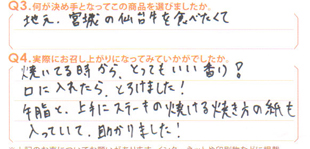 Q3.何が決め手となってこの商品を選びましたか。
地元、宮城の仙台牛を食べたくて
Q4.実際にお召し上がりになってみていかがでしたか。
焼いてる時から、とってもいい香り!
口に入れたら、とろけました!
牛脂と、上手にステーキの焼ける焼き方の紙も
入っていて、助かりました!